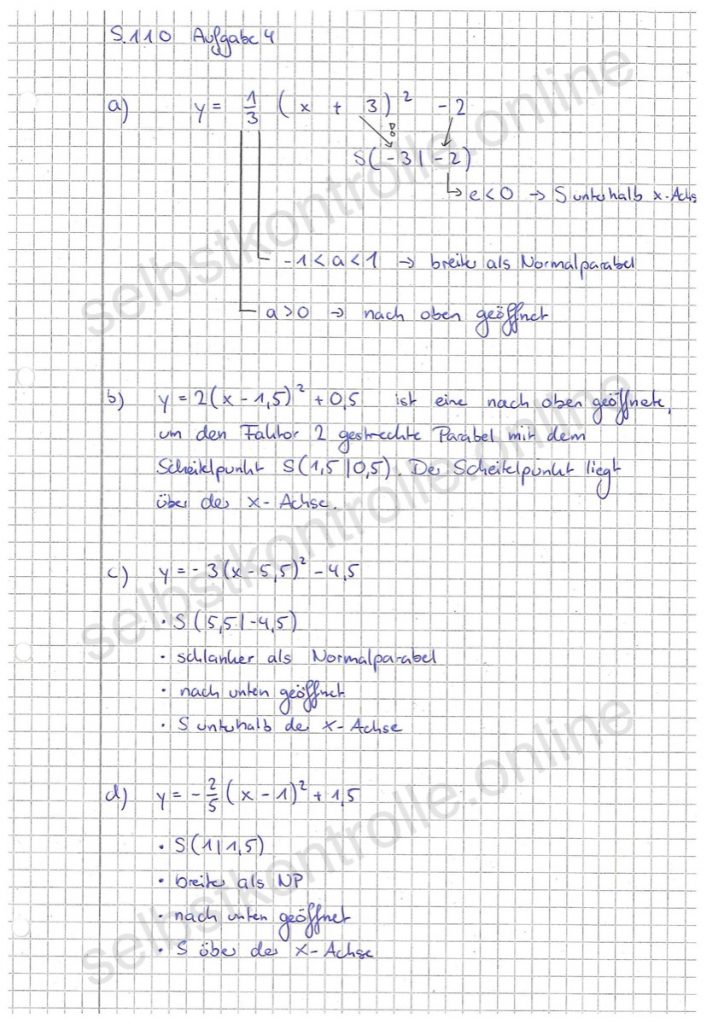 S.110 Aufgabe 4
a) y = 1/3 (x + 3)² - 2
!
S(-3|-2)
↳ e<0 → S unterhalb x-Achs
-1<a<1 → breiter als Normalparabel
a>0 → nach oben geöffnet
b) y = 2(x - 1,5)² + 0,5 ist eine nach oben geöffnete,
um den Faktor 2 gestreckte Parabel mit dem
Scheitelpunkt S(1,5|0,5). Der Scheitelpunkt liegt
über der x-Achse.
c) y = -3(x-5,5)² - 4,5
· S(5,5|-4,5)
· schlanker als Normalparabel
· nach unten geöffnet
· S unterhalb der x-Achse
d) y = -2/5 (x - 1)² + 1,5
· S(1|1,5)
· breiter als NP
· nach unten geöffnet
· S über der x-Achse
selbstkontrolle.online
selbstkontrolle.online
selbstkontrolle.online